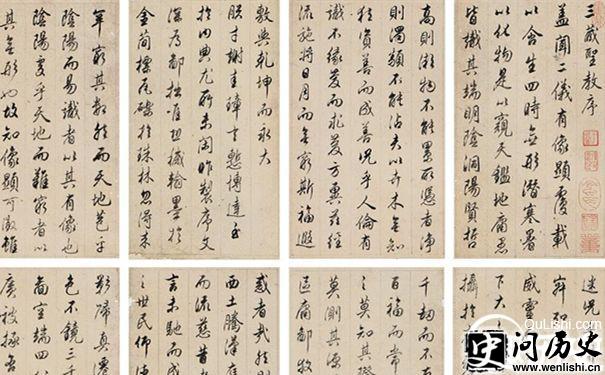 三藏聖教序
蓋聞二儀有像顯覆載
以含生四時無形潛寒暑
以化物是以窺天鑑地庸愚
皆識其端明陰洞陽賢哲
高則微物不能累所憑者淨
則濁類不能沾夫以卉木無知
猶資善而成善況乎人倫有
識不緣慶而求慶方冀茲經
流施將日月而無窮斯福遐
敷與乾坤而永大
朕才謝珪璋言慙博達至
於內典尤所未閑昨製序文
深為鄙拙唯恐穢翰墨於
金簡標瓦礫於珠林忽得來
罕窮其數然而天地苞乎
陰陽而易識者以其有像也
陰陽處乎天地而難窮者以
其無形也故知像顯可徵雖
迷況
威靈
下大
攝於
千劫而不
百福而常
之莫知其際
莫測其源
區庸鄙
惑者哉然則
西土騰漢庭
而流慈昔
言未馳而成
之世民仰德
影歸真遷
色不鏡三千
圖空端四八
廣被拯含
QuLishi.com
问历史
www.wenlishi.cn